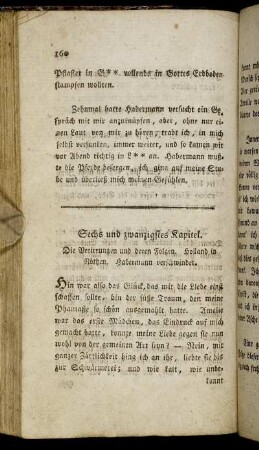 160
Pflaster in G** vollends in Gottes Erdboden
stampfen wollten.
Zehnmal hatte Habermann versucht ein Ge-
spräch mit mir anzuknüpfen, aber, ohne nur ei-
nen Laut von mir zu hören, trabt ich, in mich
selbst versunken, immer weiter, und so kamen wir
vor Abend richtig in L** an. Habermann mußt-
te die Pferde besorgen, ich ging auf meine Stu-
be und überließ mich meinen Gefühlen.
Sechs und zwanzigstes Kapitel.
Die Verirrungen und deren Folgen. Holland in
Nöthen. Habermann verschwindet.
Hin war also das Glück, das mir die Liebe ein
schaffen sollte, hin der süße Traum, den meine
Phantasie so schön ausgemahlt hatte. Amelie
war das erste Mädchen, das Eindruck auf mich
gemacht hatte, konnte meine Liebe gegen sie nun
wohl von der gemeinen Art seyn? — Nein, mit
ganzer Zärtlichkeit hing ich an ihr, liebte sie bis
zur Schwärmerei; und wie kalt, wie unbe-
kannt